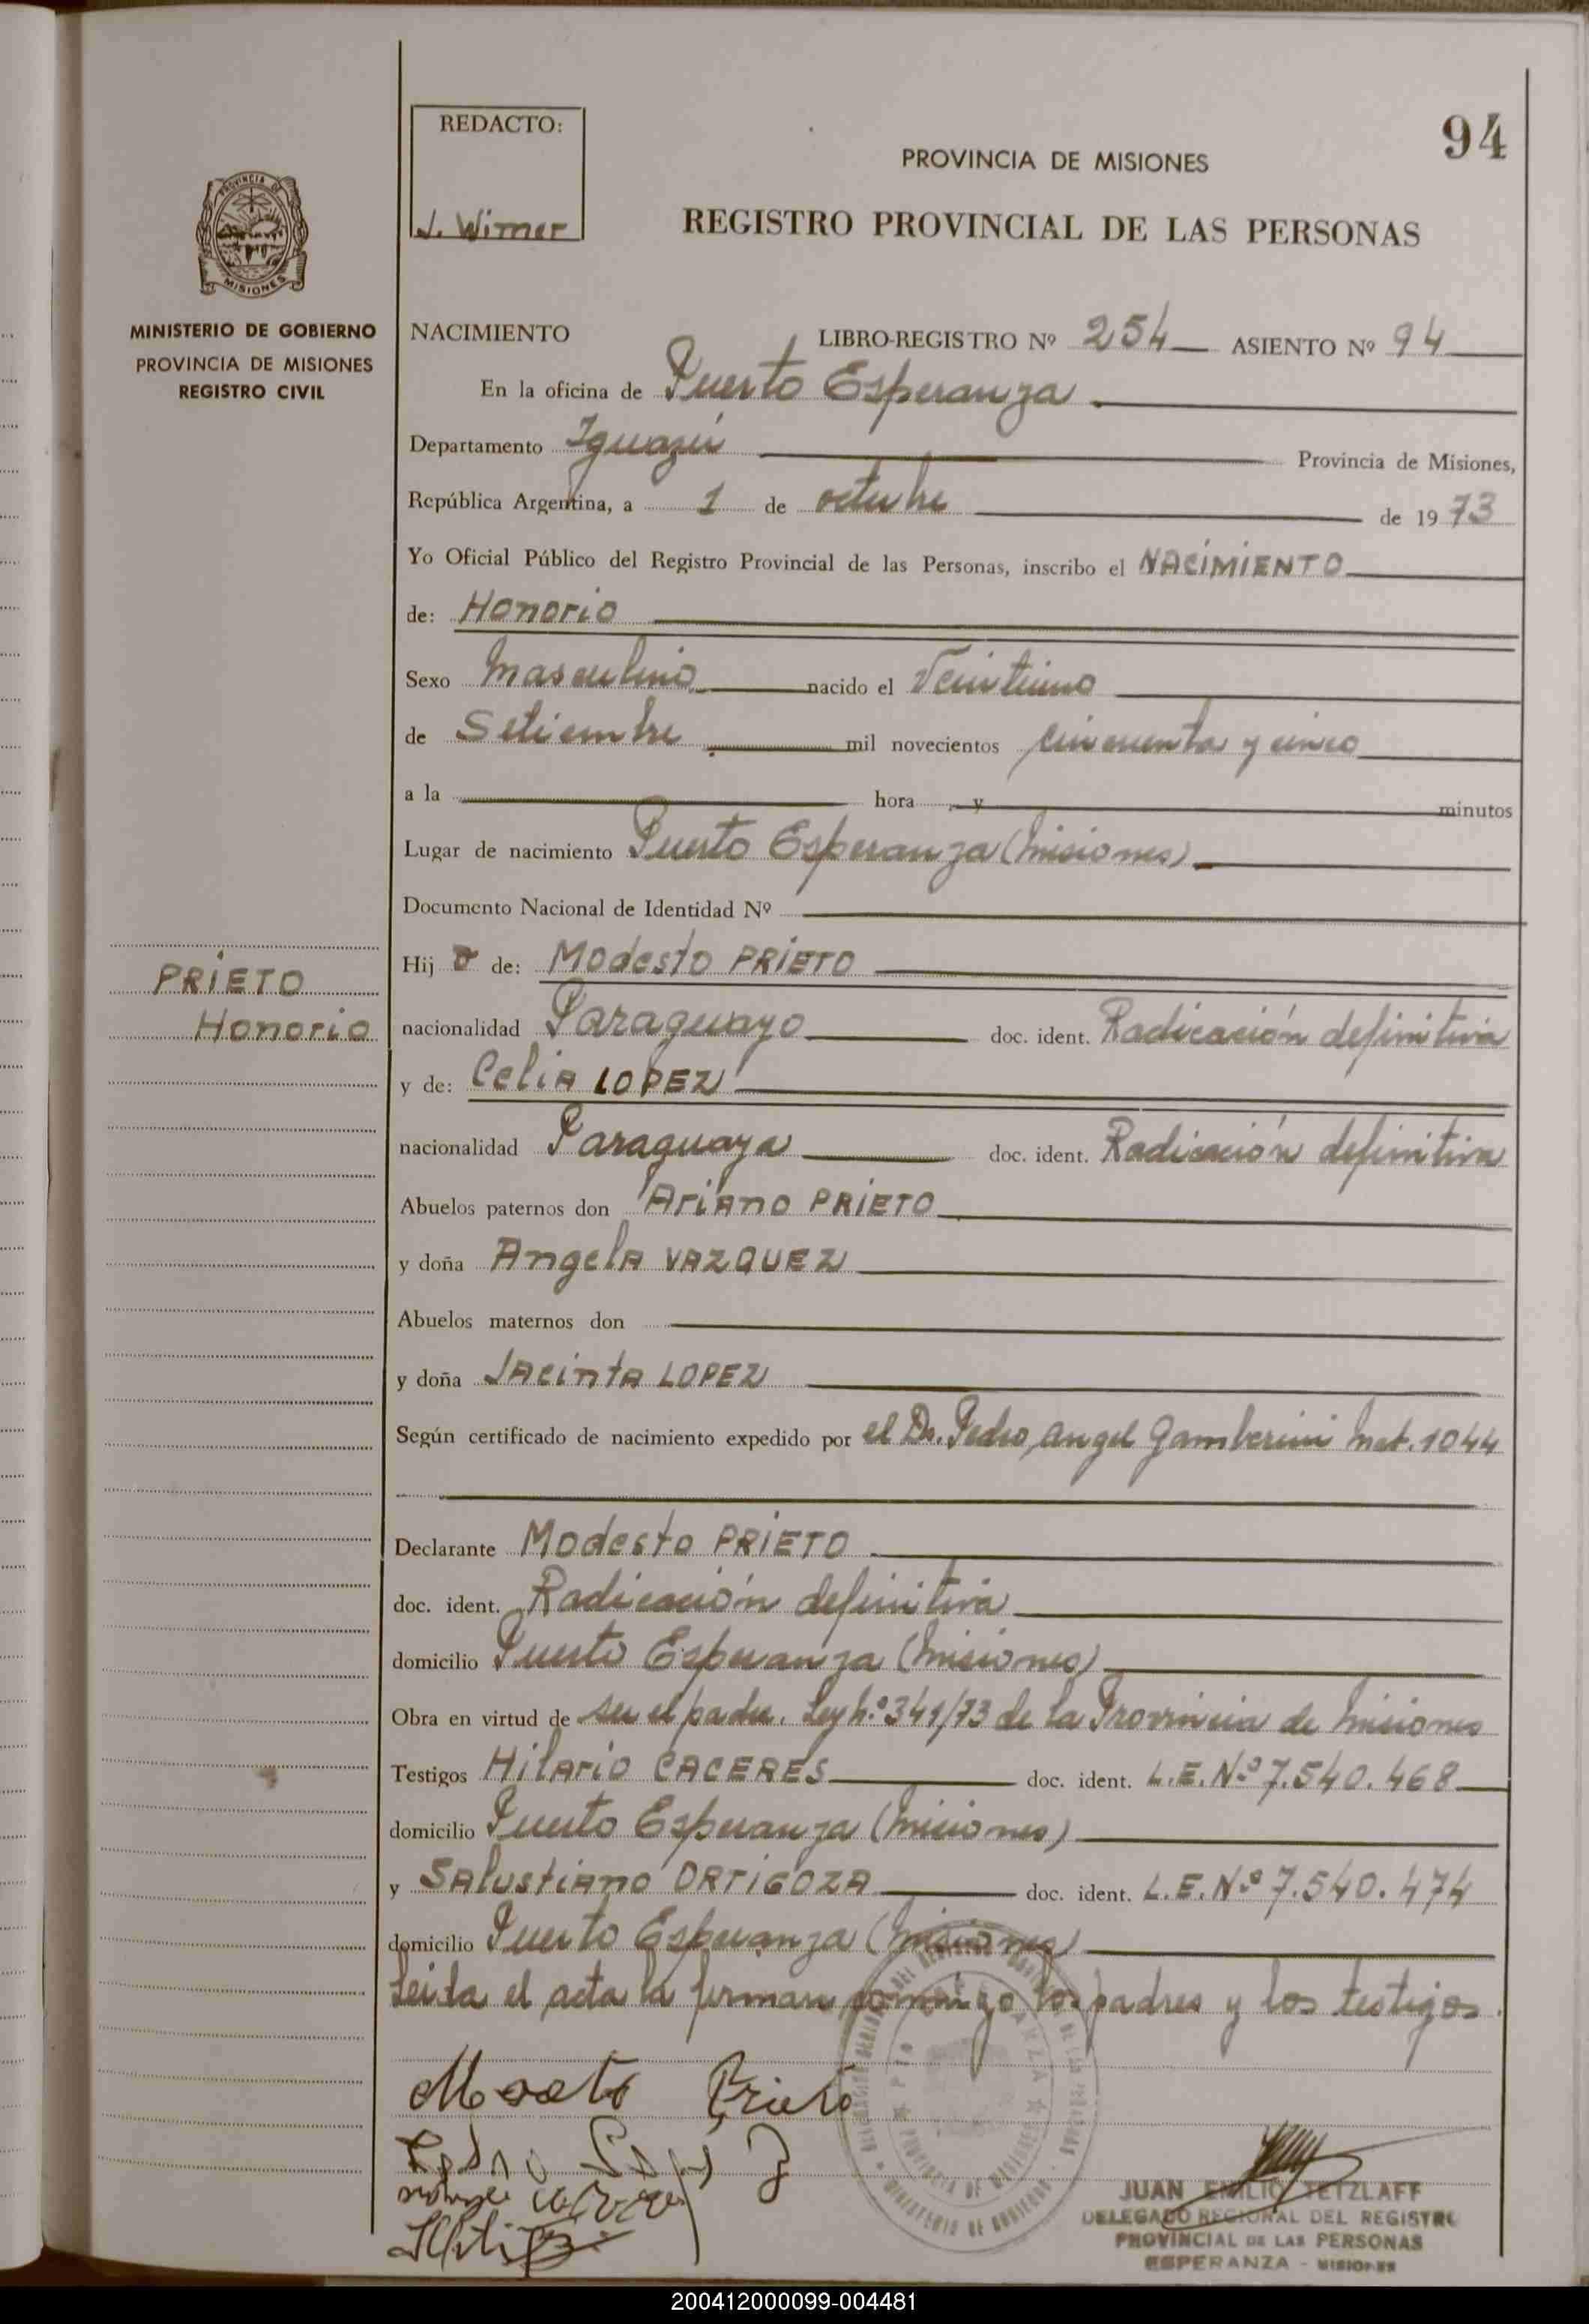 REDACTO:
J. Wimer
94
PROVINCIA DE MISIONES
REGISTRO PROVINCIAL DE LAS PERSONAS
PROVINCIA DE
MISIONES
MINISTERIO DE GOBIERNO
PROVINCIA DE MISIONES
REGISTRO CIVIL
NACIMIENTO LIBRO-REGISTRO Nº 254 ASIENTO Nº 94
En la oficina de Puerto Esperanza
Departamento Iguazú Provincia de Misiones,
República Argentina, a 1 de octubre de 1973
Yo Oficial Público del Registro Provincial de las Personas, inscribo el NACIMIENTO
de: Honorio
Sexo Masculino nacido el Veintiuno
de Setiembre mil novecientos cincuenta y cinco
a la hora y minutos
Lugar de nacimiento Puerto Esperanza (Misiones)
Documento Nacional de Identidad Nº
PRIETO
Honorio
Hijo de: Modesto PRIETO
nacionalidad Paraguayo doc. ident. Radicación definitiva
y de: Celia LOPEZ
nacionalidad Paraguaya doc. ident. Radicación definitiva
Abuelos paternos don Ariano PRIETO
y doña Angela VAZQUEZ
Abuelos maternos don
y doña Jacinta LOPEZ
Según certificado de nacimiento expedido por el Dr. Pedro Angel Gamberini Mat. 1044
Declarante Modesto PRIETO
doc. ident. Radicación definitiva
domicilio Puerto Esperanza (Misiones)
Obra en virtud de ser el padre. Ley Nº 341/73 de la Provincia de Misiones
Testigos Hilario CACERES doc. ident. L.E. Nº 7.540.468
domicilio Puerto Esperanza (Misiones)
y Salustiano ORTIGOZA doc. ident. L.E. Nº 7.540.474
domicilio Puerto Esperanza (Misiones)
Leida el acta la firman conmigo los padres y los testigos.
Prieto
JUAN EMILIO TETZLAFF
DELEGADO REGIONAL DEL REGISTRO
PROVINCIAL DE LAS PERSONAS
ESPERANZA - MISIONES
200412000099-004481